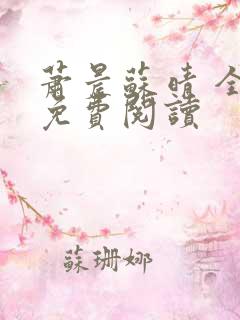 蕭景蘇晴 全
免費閱讀
蘇珊娜